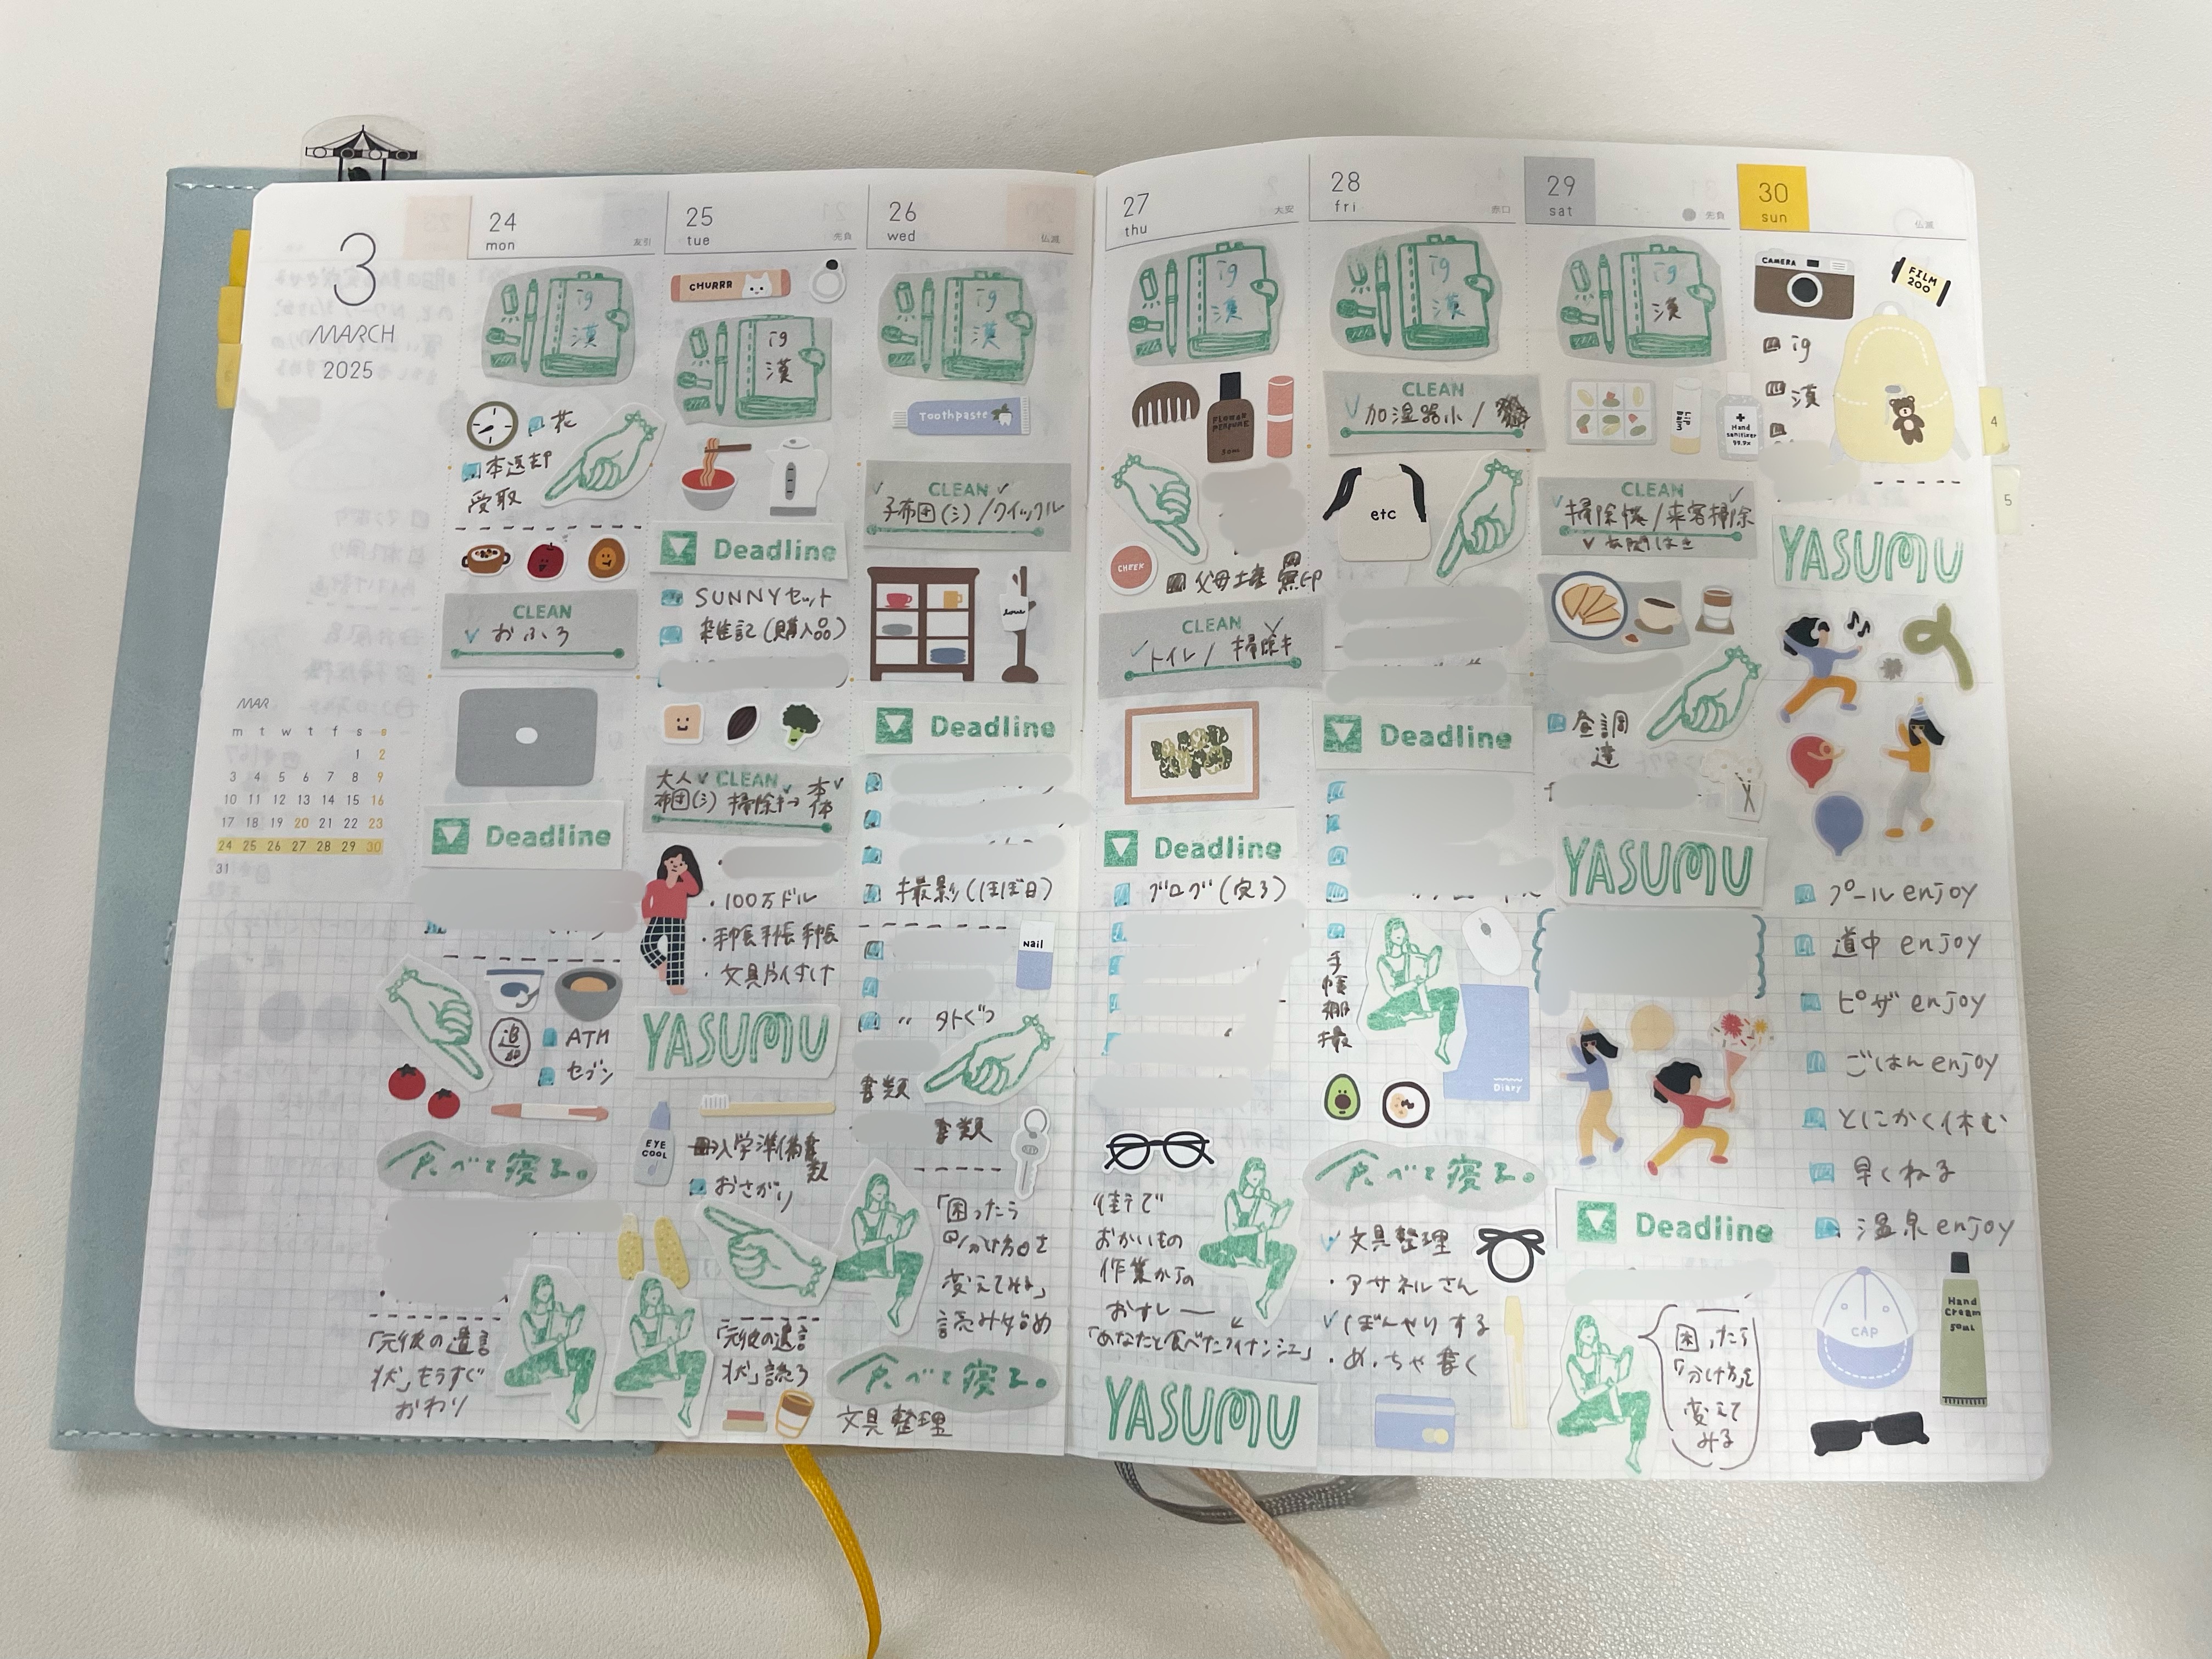 3
MARCH
2025
MAR
m t w t f s s
1 2
3 4 5 6 7 8 9
10 11 12 13 14 15 16
17 18 19 20 21 22 23
24 25 26 27 28 29 30
31
24
mon
友引
ig
漢
花
本返却
受取
CLEAN
おふろ
Deadline
ATM
セブン
食べて寝る。
「元彼の遺言
状」もうすぐ
おわり
25
tue
先負
CHURRR
ig
漢
Deadline
SUNNYセット
雑記(購入品)
大人 CLEAN 本
布団(シ) 掃除キ 体
・100万ドル
・手帳手帳手帳
・文具片付け
YASUMU
EYE
COOL
入学準備書
類
おさがり
「元彼の遺言
状」読了
26
wed
仏滅
ig
漢
Toothpaste
CLEAN
子布団(シ)/クイックル
love
Deadline
撮影(ほぼ日)
Nail
書類
書類
「困ったら
分け方を
変えてみる」
読み始め
食べて寝る。
文具整理
27
thu
大安
ig
漢
FLOWER
PERFUME
50ml
CHEEK
父母土産
CLEAN
トイレ/掃除キ
Deadline
ブログ(完了)
おかいもの
「あなたと食べたフィナンシェ」
YASUMU
28
fri
赤口
ig
漢
CLEAN
加湿器小/
etc
Deadline
手
帳
棚
撮
Diary
食べて寝る。
文具整理
・アサネルさん
ぼんやりする
・めっちゃ書く
29
sat
先負
ig
漢
Lip
Balm
Hand
sanitizer
99.9%
CLEAN
掃除機/来客掃除
玄関はき
昼調
達
YASUMU
Deadline
困ったら
「分け方」を
変えて
みる
30
sun
仏滅
CAMERA
FILM
200
ig
漢
YASUMU
プールenjoy
道中 enjoy
ピザ enjoy
ごはん enjoy
とにかく休む
早くねる
温泉enjoy
CAP
Hand
Cream
50ml
4
5